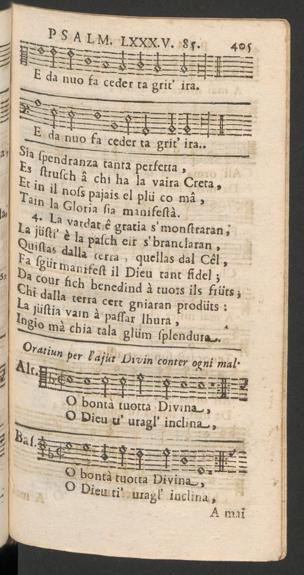 PSALM. LXXX.V. 85. 405
E da nuo fa ceder ta grit' ira.
E da nuo fa ceder ta grit' ira..
Sia spendranza tanta perfetta,
Es strusch â chi ha la vaira Creta,
Et in il noss pajais el plü co mâ,
Tain la Gloria sia manifestà.
4. La vardat ê gratia s'monstraran,
La jüsti' è la pasch eir s'branclaran,
Quistas dalla terra, quellas dal Cêl,
Fa sgür manifest il Dieu tant fidel;
Da cour sich benedind à tuots ils früts;
Chi dalla terra cert gniaran prodüts:
La jüstia vain à passar lhura,
Ingio mà chia tala glüm splendura.
Oratiun per l'ajüt Divin conter ogni mal.
Alt.
O bontà tuotta Divina,
O Dieu ti' uragl' inclina,
Bas.
O bontà tuotta Divina,
O Dieu ti' uragl' inclina,
A mai